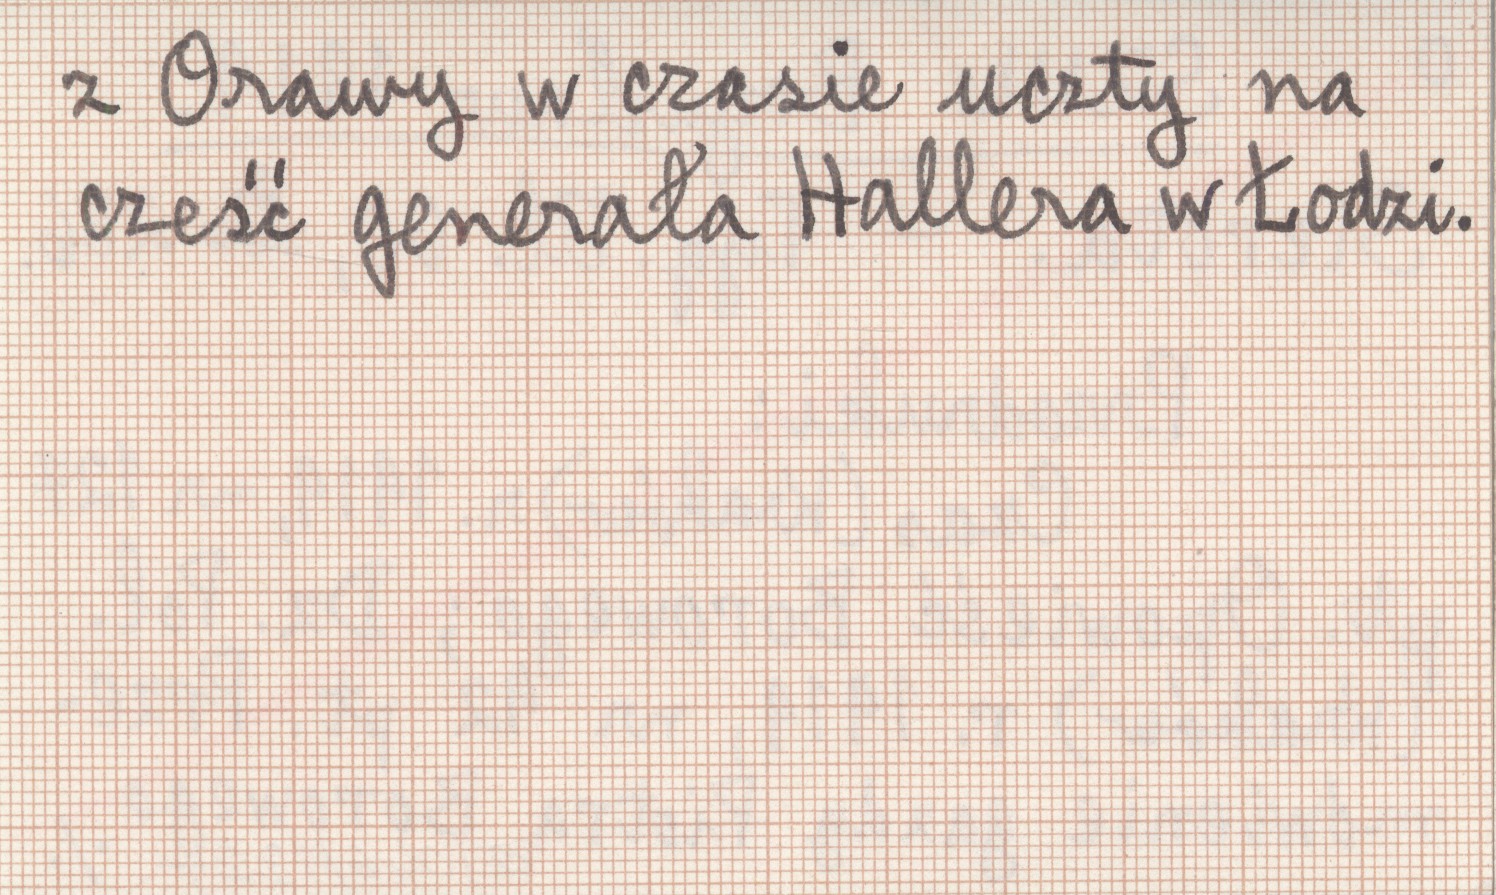 z Orawy w czasie uczty na
cześć generała Hallera w Łodzi.